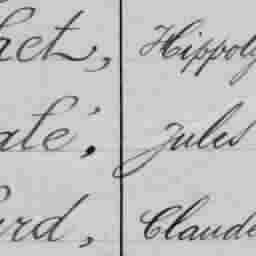 het, Hippoly
até, Jules
ard, Claude